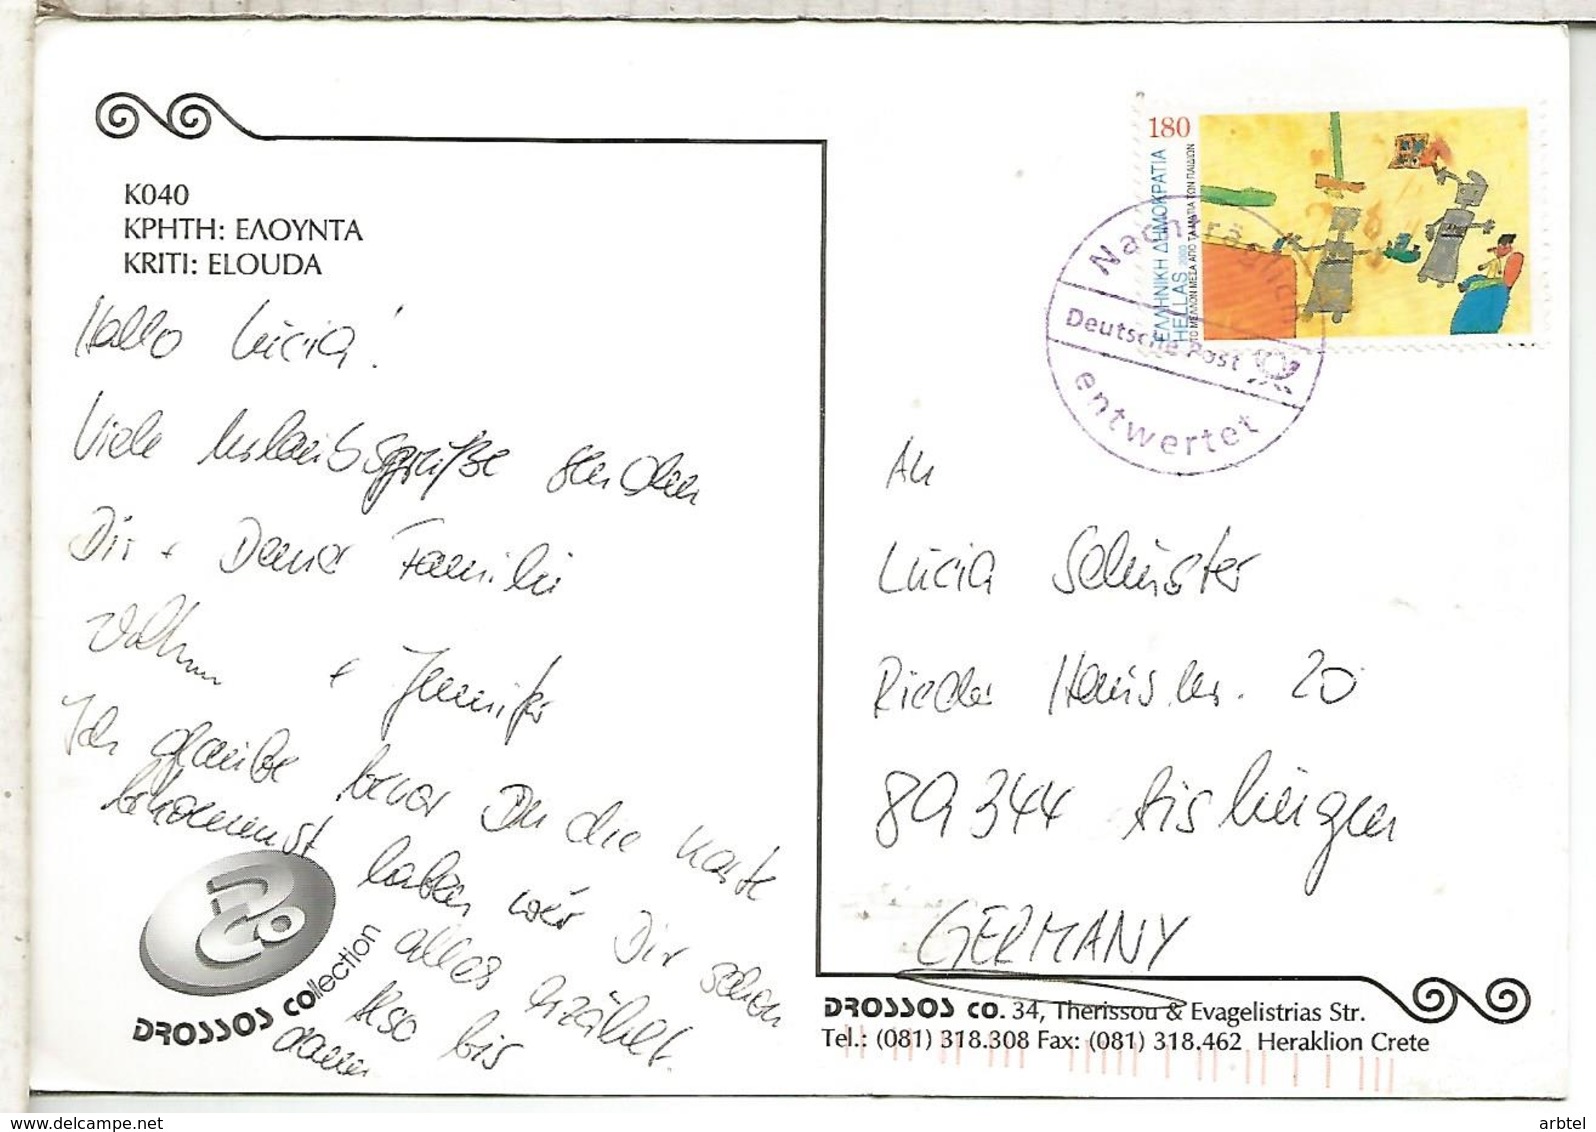 K040
ΚΡΗΤΗ: ΕΛΟΥΝΤΑ
KRITI: ELOUDA
Hallo Lucia!
Viele Urlaubsgrüße senden
Dir + Deiner Familie
+ Jennifer
Ich glaube bevor Du die Karte
bekommst haben wir Dir schon
alles erzählt.
Also bis
dann
DCO
DROSSOS COllection
180
ΕΛΛΗΝΙΚΗ ΔΗΜΟΚΡΑΤΙΑ
HELLAS 2000
ΤΟ ΜΕΛΛΟΝ ΜΕΣΑ ΑΠΟ ΤΑ ΜΑΤΙΑ ΤΩΝ ΠΑΙΔΙΩΝ
Nachträglich
Deutsche Post
entwertet
An
Lucia Schuster
Rieder Haus nr. 20
89344 Aislingen
GERMANY
DROSSOS CO. 34, Therissou & Evagelistrias Str.
Tel.: (081) 318.308 Fax: (081) 318.462 Heraklion Crete
arbtel
www.delcampe.net